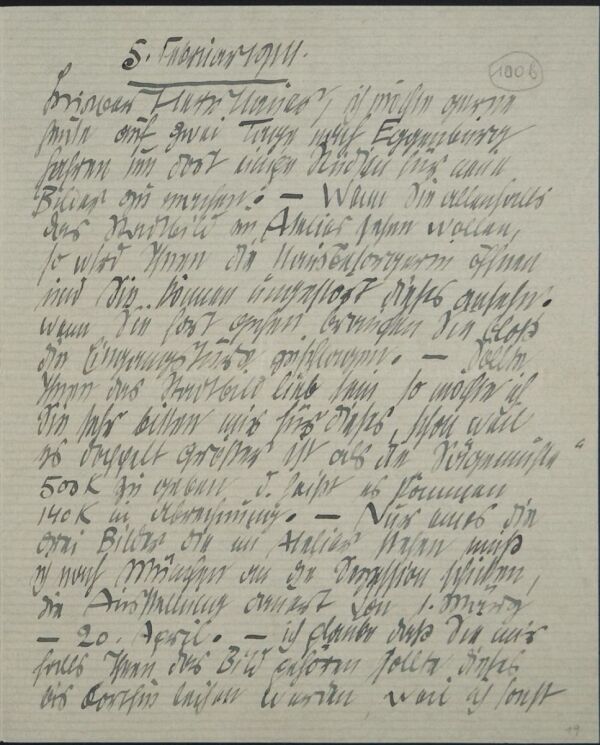 5. Februar 1911.
100 b
Lieber Herr Hauer, ich möchte gerne
heute auf zwei Tage nach Eggenburg
fahren um dort einige Studien für neue
Bilder zu machen. — Wenn Sie allenfalls
das Stadtbild im Atelier sehen wollen,
so wird Ihnen die Hausbesorgerin öffnen
und Sie können ungestört dieses ansehn.
wenn Sie fort gehen brauchen Sie bloß
die Eingangstüre zuschlagen. — Sollte
Ihnen das Stadtbild lieb sein so möchte ich
Sie sehr bitten mir für dieses, schon weil
es doppelt größer ist als die "Sägemühle"
500 K zu geben d. heißt es kommen
140 K in Abrechnung. — Nur eines der
drei Bilder die im Atelier stehen muß
ich nach München an die Sezession schicken,
die Ausstellung dauert von 1. März
— 20. April. — ich glaube daß Sie mir
falls Ihnen das Bild gehören sollte dieses
bis dorthin leihen würden, weil ich sonst
19